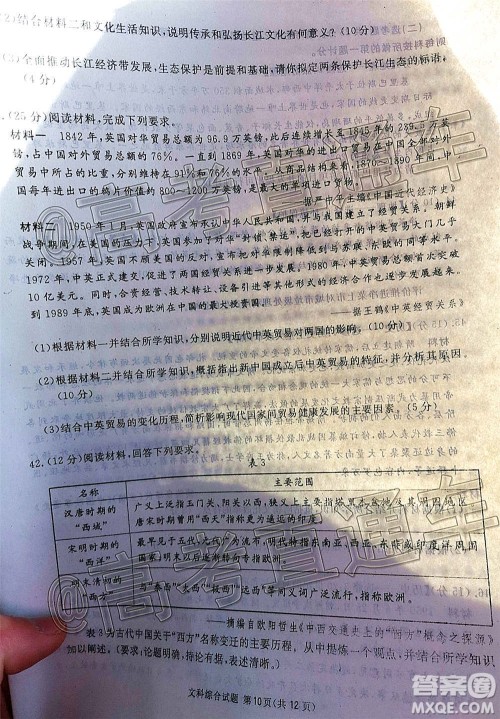 (2)结合材料二和文化生活知识,说明传承和弘扬长江文化有何意义?(10分)
(3)全面推动长江经济带发展,生态保护是前提和基础,请你拟定两条保护长江生态的标语。
(4分)
(25分)阅读材料,完成下列要求。
材料一 1842年,英国对华贸易总额为96.9万英镑,此后连续增长至1845年的
万英镑,占中国对外贸易总额的76%。一直到1869年,英国对华贸易总额在中国全部对外
贸易中所占的比重,分别维持在91%和76%
国每年进出口的鸦片价值约800~1200万英镑,是最大的单项进口货物。
——据严中平主编《中国近代经济史》
材料二 1950年1月,英国政府宣布承认中华人民共和国,并与我国建立了经贸关系。朝鲜
战争期间,在美国的压力下,英国不顾
关闭。1957年,英国不顾美国的反对,宣布把对华管制降低到与苏联、东欧的同等水平。
1972年,中英正式建交,促进了两国经贸关系进一步发展。1980年,中英贸易总额突破
10亿美元。同时,合资经营、技术转让、设备引进等其他形式的经济合作也逐步发展起来。
到1989年底,英国成为欧洲在中国的最大投资国。
——据王鹤《中英经贸关系》
(1)根据材料一并结合所学知识,分别说明近代中英贸易对两国的影响。(10分)
(2)根据材料二并结合所学知识,概括指出新中国成立后中英贸易的特征,并分析其原因。
(10分)
(3)结合中英贸易的变化历程,简析影响现代国家间贸易健康发展的主要因素。(5分)
42.(12分)阅读材料,回答下列要求。
表3
名称 主要范围
汉唐时期的“西域” 广义上泛指玉门关、阳关以西,狭义上主要指塔里木盆地及其周围区域
唐宋时期曾用“西天”指称更为遥远的印度。
宋明时期的“西洋” 最早见于五代,元代广为流布,明代特指东南亚、西亚、东非或印度洋周围
国家,明末以后逐渐转向专指欧洲。
明末清初的“西方” 与“泰西”“太西”“极西”“远西”等同义词广泛流行,指称欧洲。
——摘编自欧阳哲生《中西交通史上的“西方”概念之探源》
表3为古代中国关于“西方”名称变迁的主要历程,从中提炼一个观点,并结合所学知识
加以阐述。(要求:论题明确,持论有据,表述清晰。)
文科综合试题 第10页(共12页)
高考直通车
高考直通车
答案圈
MXQE.COM